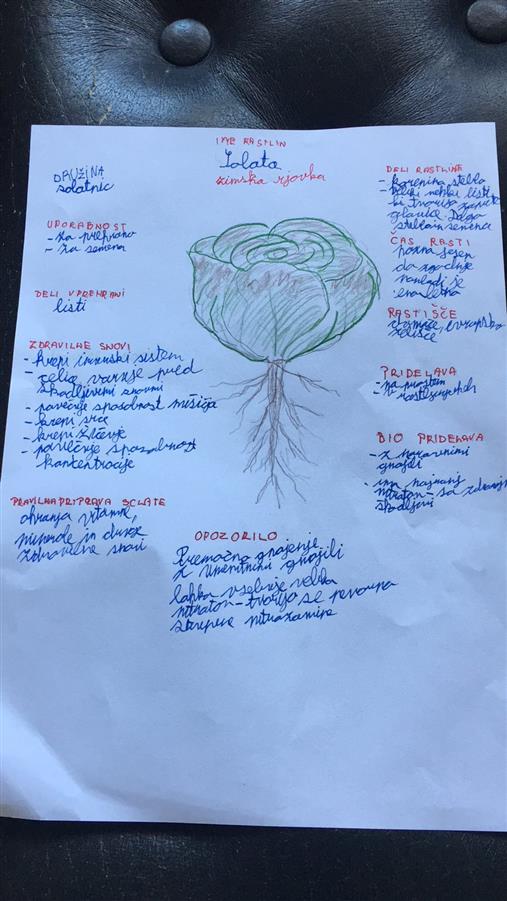 IME RASTLIN
Solata
zimska rjovka
DRUŽINA
solatnic
UPORABNOST
- za prehrano
- za semena
DELI V PREHRANI
listi
ZDRAVILNE SNOVI
- krepi imunski sistem
- celic varuje pred
škodljivimi snovmi
- povečuje sposobnost mišičja
- krepi srce
- krepi živčenje
- povečenje sposobnost
koncentracije
PRAVILNA PRIPRAVA SOLATE
ohranja vitamine,
minerale in druge
zdravilne snovi
DELI RASTLINE
- korenina steblo
veliki nežni listi
ki tvorijo
glavice
steblo in semena
ČAS RASTI
pozna jesen
do zgodnje
pomladi je
enoletna
RASTIŠČE
evropsko
zelišče
PRIDELAVA
- na prostem
BIO PRIDELAVA
- z naravnimi
gnojili
- ima najmanj
nitratov - so zdravju
škodljivi
OPOZORILO
Premočno gnojenje
z umetnimi gnojili
lahko vsebuje veliko
nitratov - tvorijo se nevarne
strupene nitrozamine